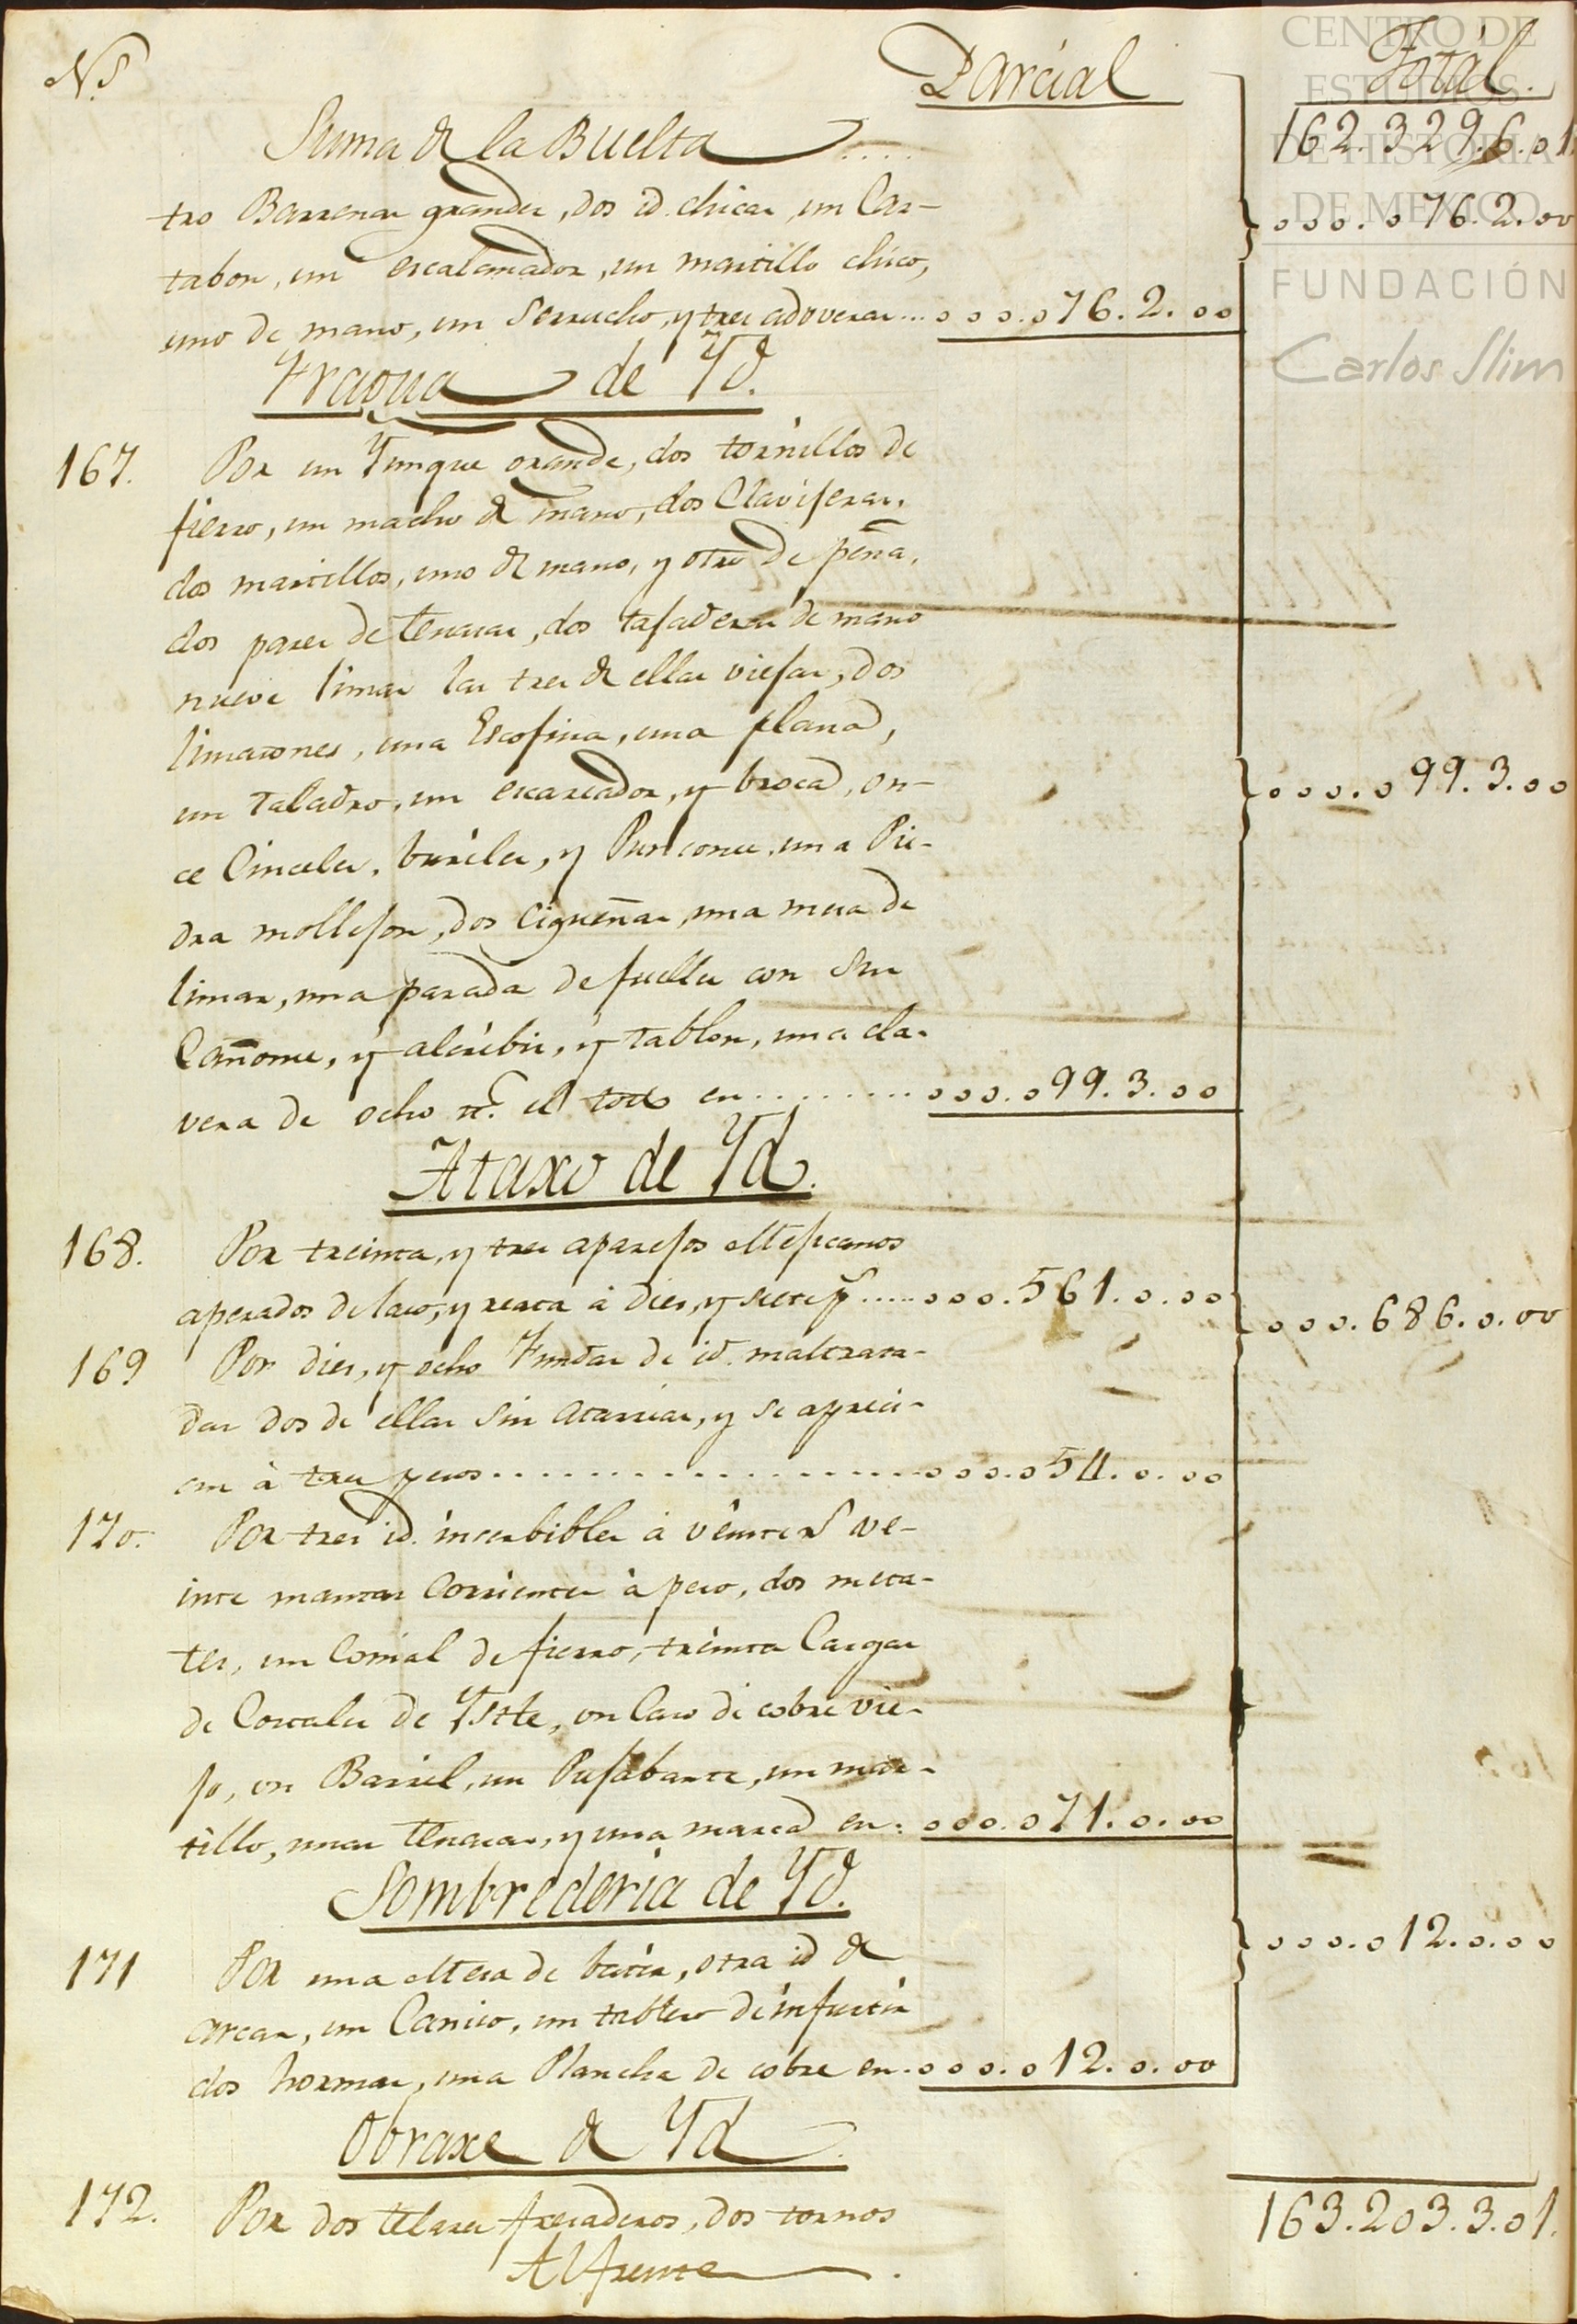 N.s Parcial Total.
Suma de la Buelta .... 162.329.6.01
tro Barrenas grandes, dos id. chicas, un Car-
tabon, un escalenador, un martillo chico, 000.076.2.00
uno de mano, un Serrucho, y tres adoveras... 000.076.2.00
Fragua de Yd.
167. Por un Yunque grande, dos tornillos de
fierro, un macho de mano, dos Claviferas,
dos martillos, uno de mano, y otro de peña,
dos pares de tenazas, dos tajaderas de mano
nueve limas las tres de ellas viejas, dos
limatones, una Escofina, una plana,
un taladro, un escareador, y broca, on- 000.099.3.00
ce Cinceles, buriles, y Punzones, una Pie-
dra mollejon, dos Cigueñas, una mesa de
limar, una parada de fuelles con sus
Cañones, y alcribis, y tablon, una cla-
vera de ocho n.s el todo en ......... 000.099.3.00
Ataxo de Yd.
168. Por treinta, y tres aparejos Mesticanos
aperados de lazo, y reata à dies, y siete p.s ..... 000.561.0.00
000.686.0.00
169 Por dies, y ocho Fundas de id. maltrata-
das dos de ellas sin atarrias, y se apreci-
an à tres pesos ................ 000.054.0.00
170. Por tres id. inserbibles à veinte r.s ve-
inte mantas Corrientes à peso, dos meta-
tes, un Comal de fierro, treinta Cargas
de Costales de Ystle, un Caso de cobre vie-
jo, un Barril, un Pujabante, un mar-
tillo, unas tenazas, y una marca en. 000.071.0.00
Sombrederia de Yd.
171 Por una Mesa de batir, otra id de 000.012.0.00
arcar, un Canizo, un tablero de infurtir
dos hormas, una Plancha de cobre en. 000.012.0.00
Obraxe de Yd
172. Por dos telares frezaderos, dos tornos 163.203.3.01.
Al frente
CENTRO DE
ESTUDIOS
DE HISTORIA
DE MEXICO
FUNDACIÓN
Carlos Slim